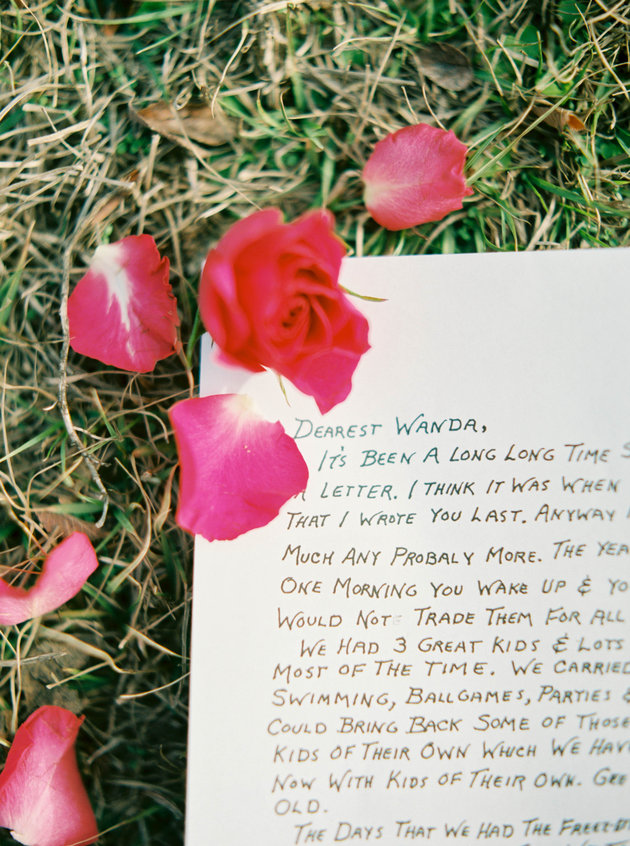 DEAREST WANDA,
IT'S BEEN A LONG LONG TIME S
A LETTER. I THINK IT WAS WHEN
THAT I WROTE YOU LAST. ANYWAY
MUCH ANY PROBALY MORE. THE YEA
ONE MORNING YOU WAKE UP & YO
WOULD NOT TRADE THEM FOR ALL
WE HAD 3 GREAT KIDS & LOTS
MOST OF THE TIME. WE CARRIED
SWIMMING, BALLGAMES, PARTIES &
COULD BRING BACK SOME OF THOSE
KIDS OF THEIR OWN WHICH WE HAV
NOW WITH KIDS OF THEIR OWN. GE
OLD.
THE DAYS THAT WE HAD THE